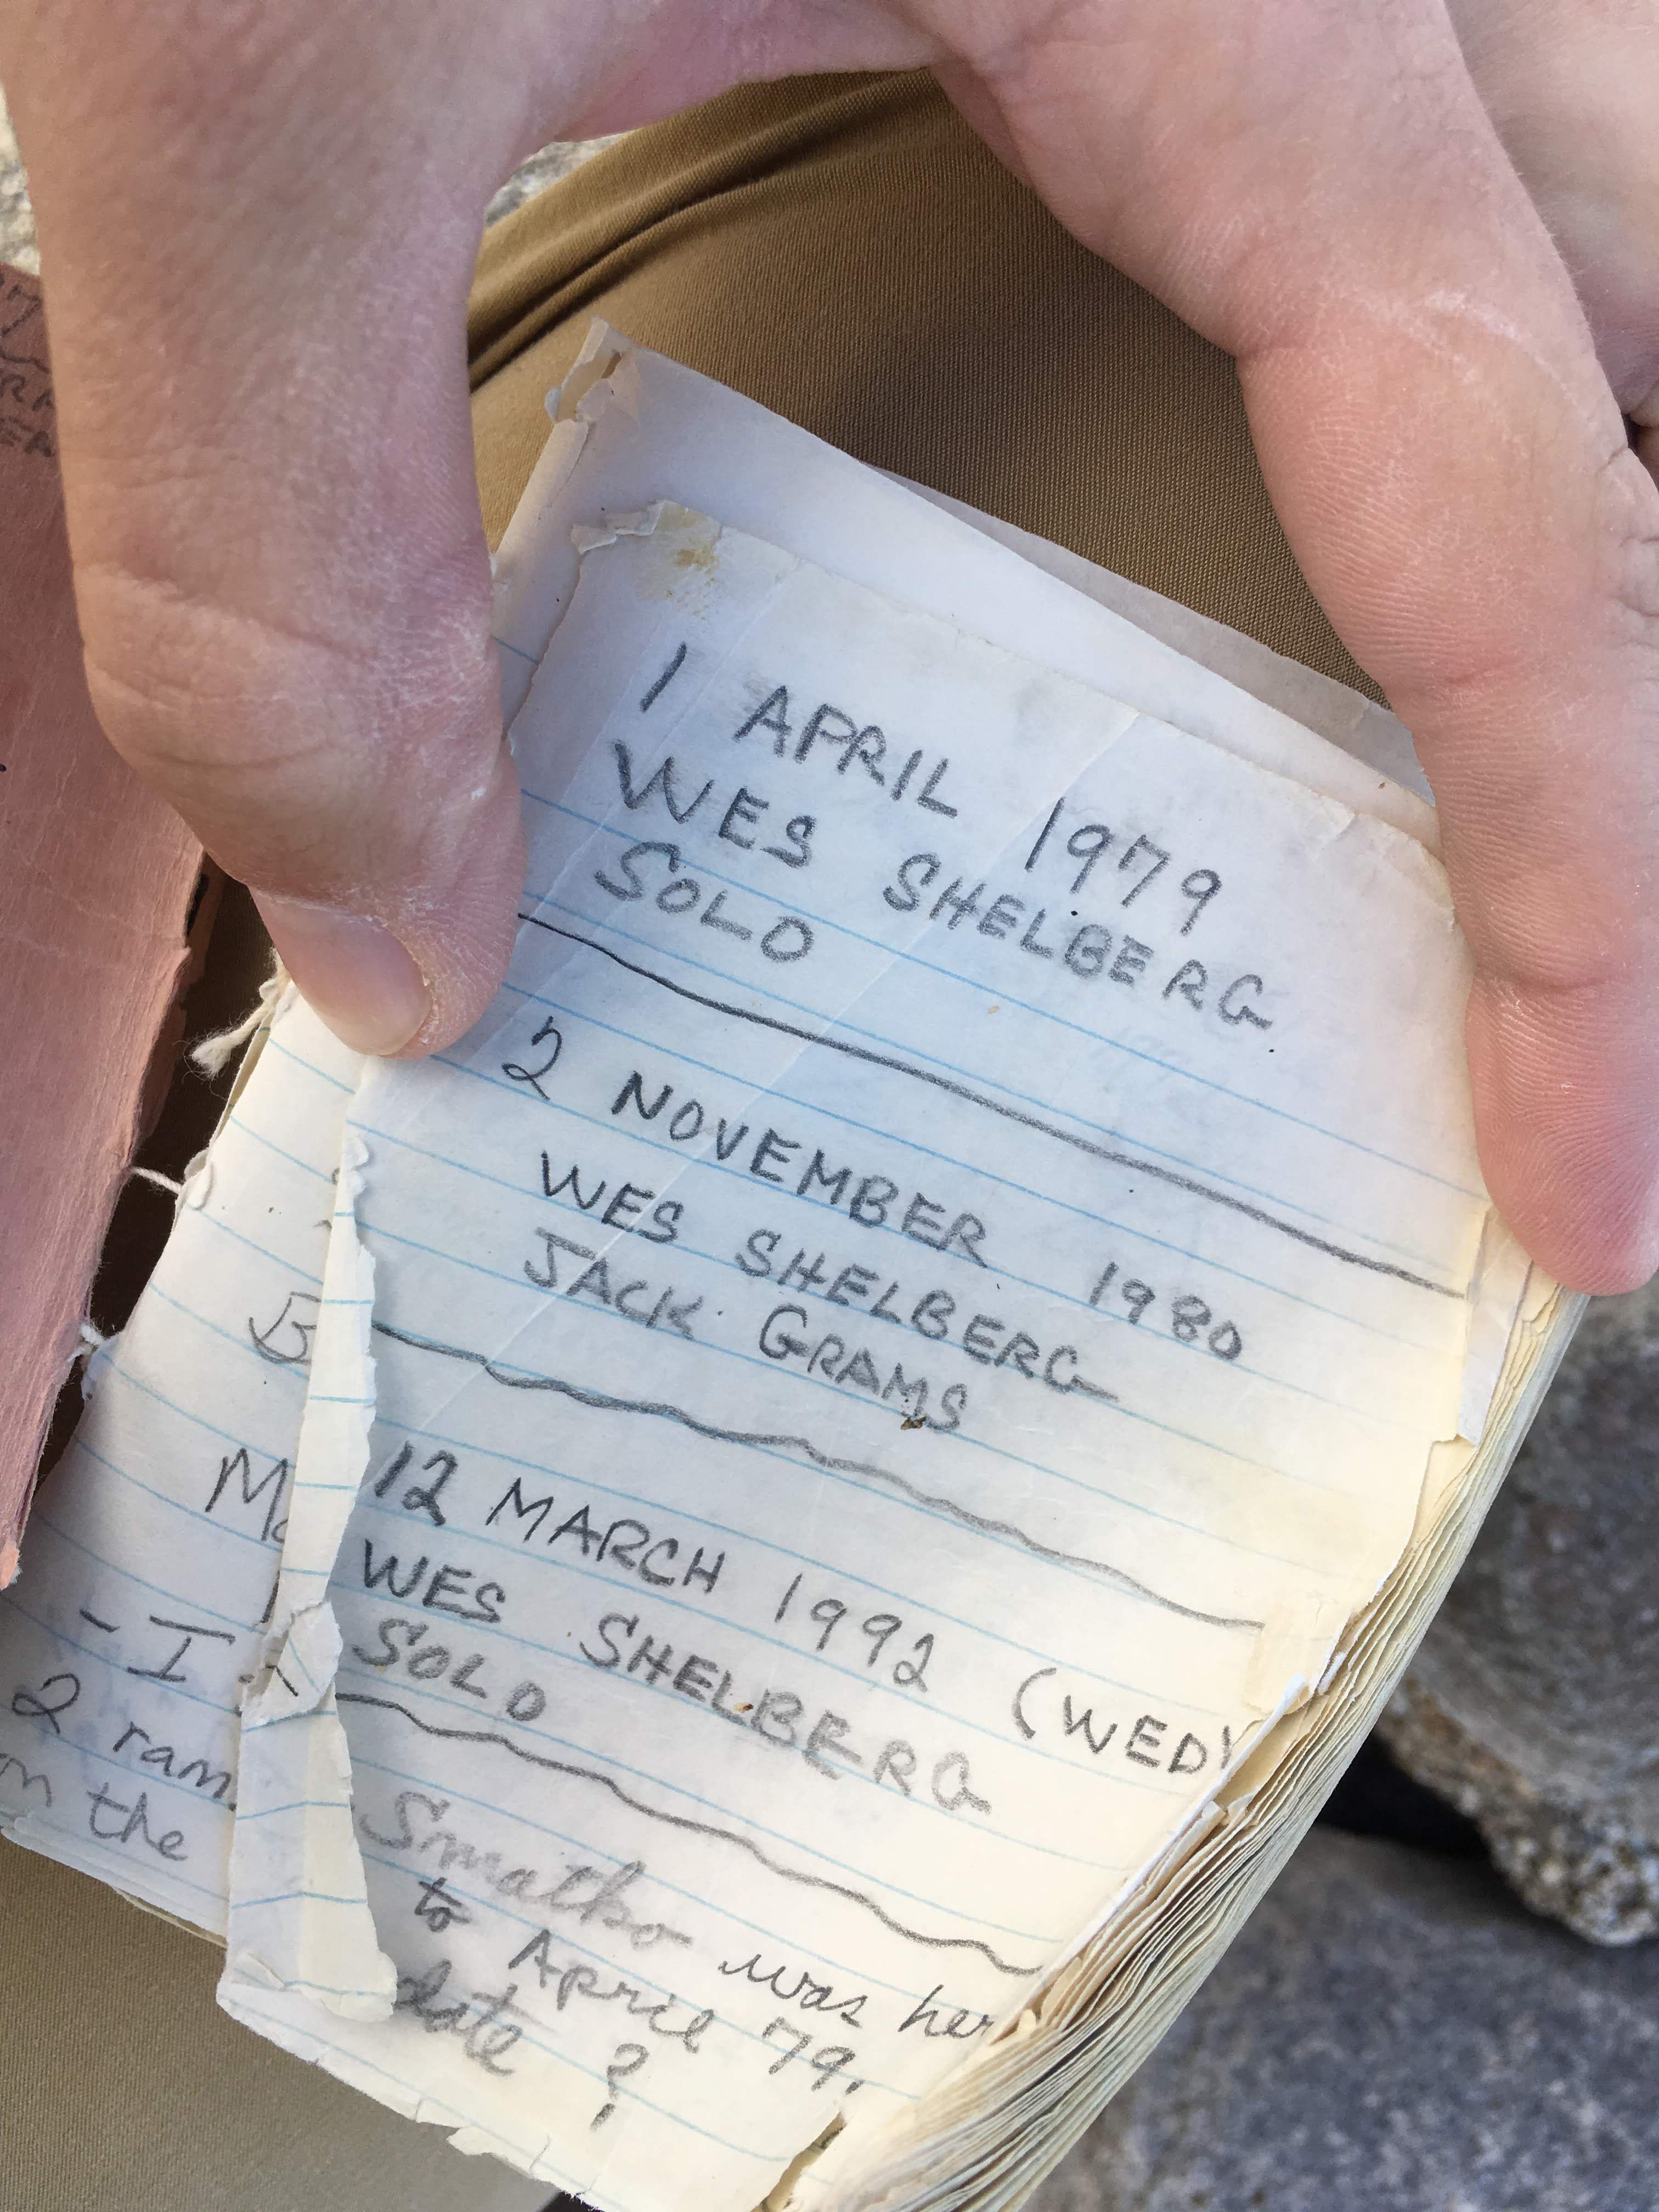 1 APRIL 1979
WES SHELBERG
SOLO
2 NOVEMBER 1980
WES SHELBERG
JACK GRAMS
12 MARCH 1992 (WED)
WES SHELBERG
SOLO
Smatko was her
to April 79.
date ?
- I
2 ram
the